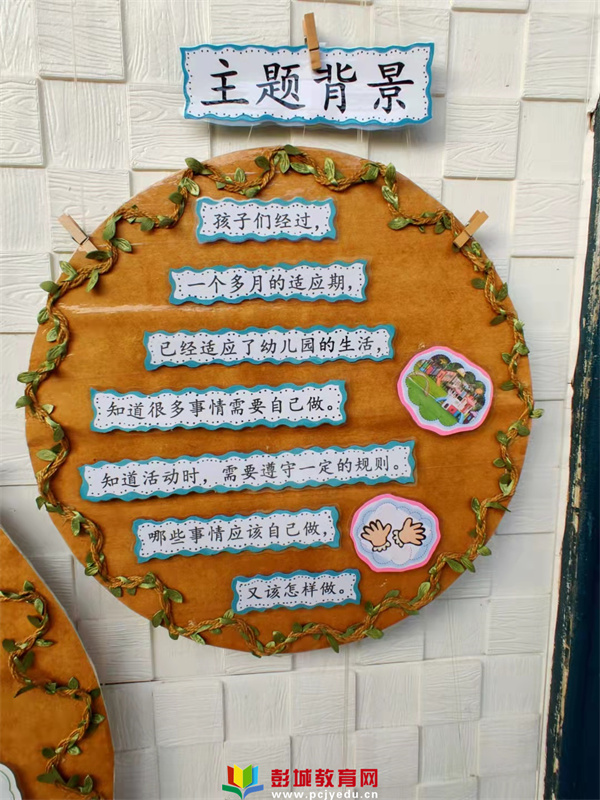 主题背景
孩子们经过，
一个多月的适应期，
已经适应了幼儿园的生活，
知道很多事情需要自己做。
知道活动时，需要遵守一定的规则。
哪些事情应该自己做，
又该怎样做。
彭城教育网
www.pcjyedu.cn